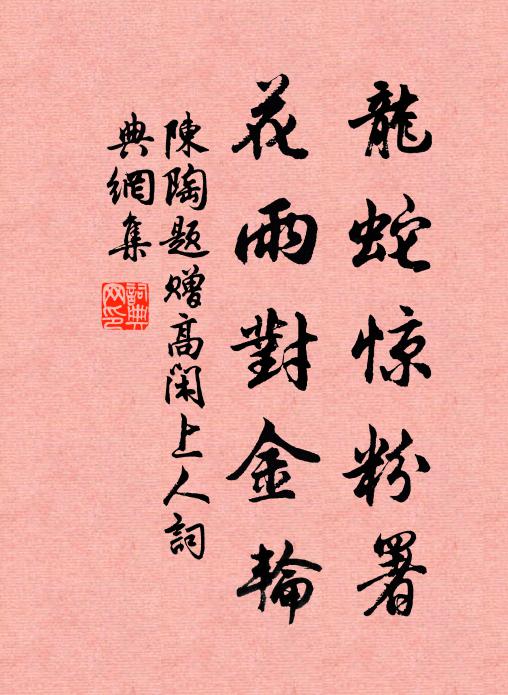 龍蛇惊粉署
花雨對金輪
陳陶題赠高閑上人詞
典網集
詞典网印